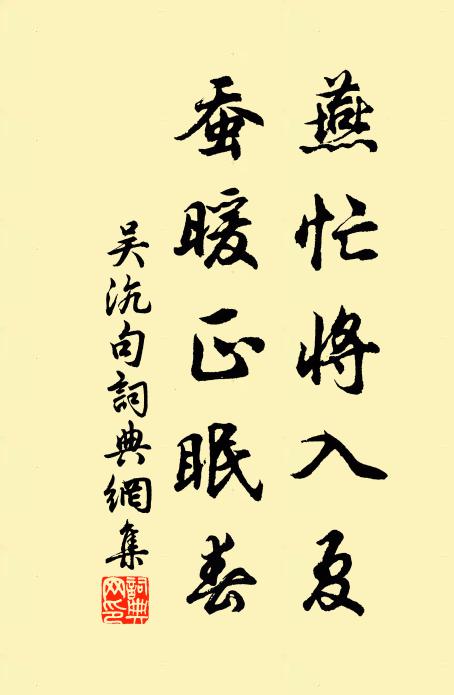 燕忙將入夏
蚕暖正眠春
吴沆句詞典網集
詞典网印